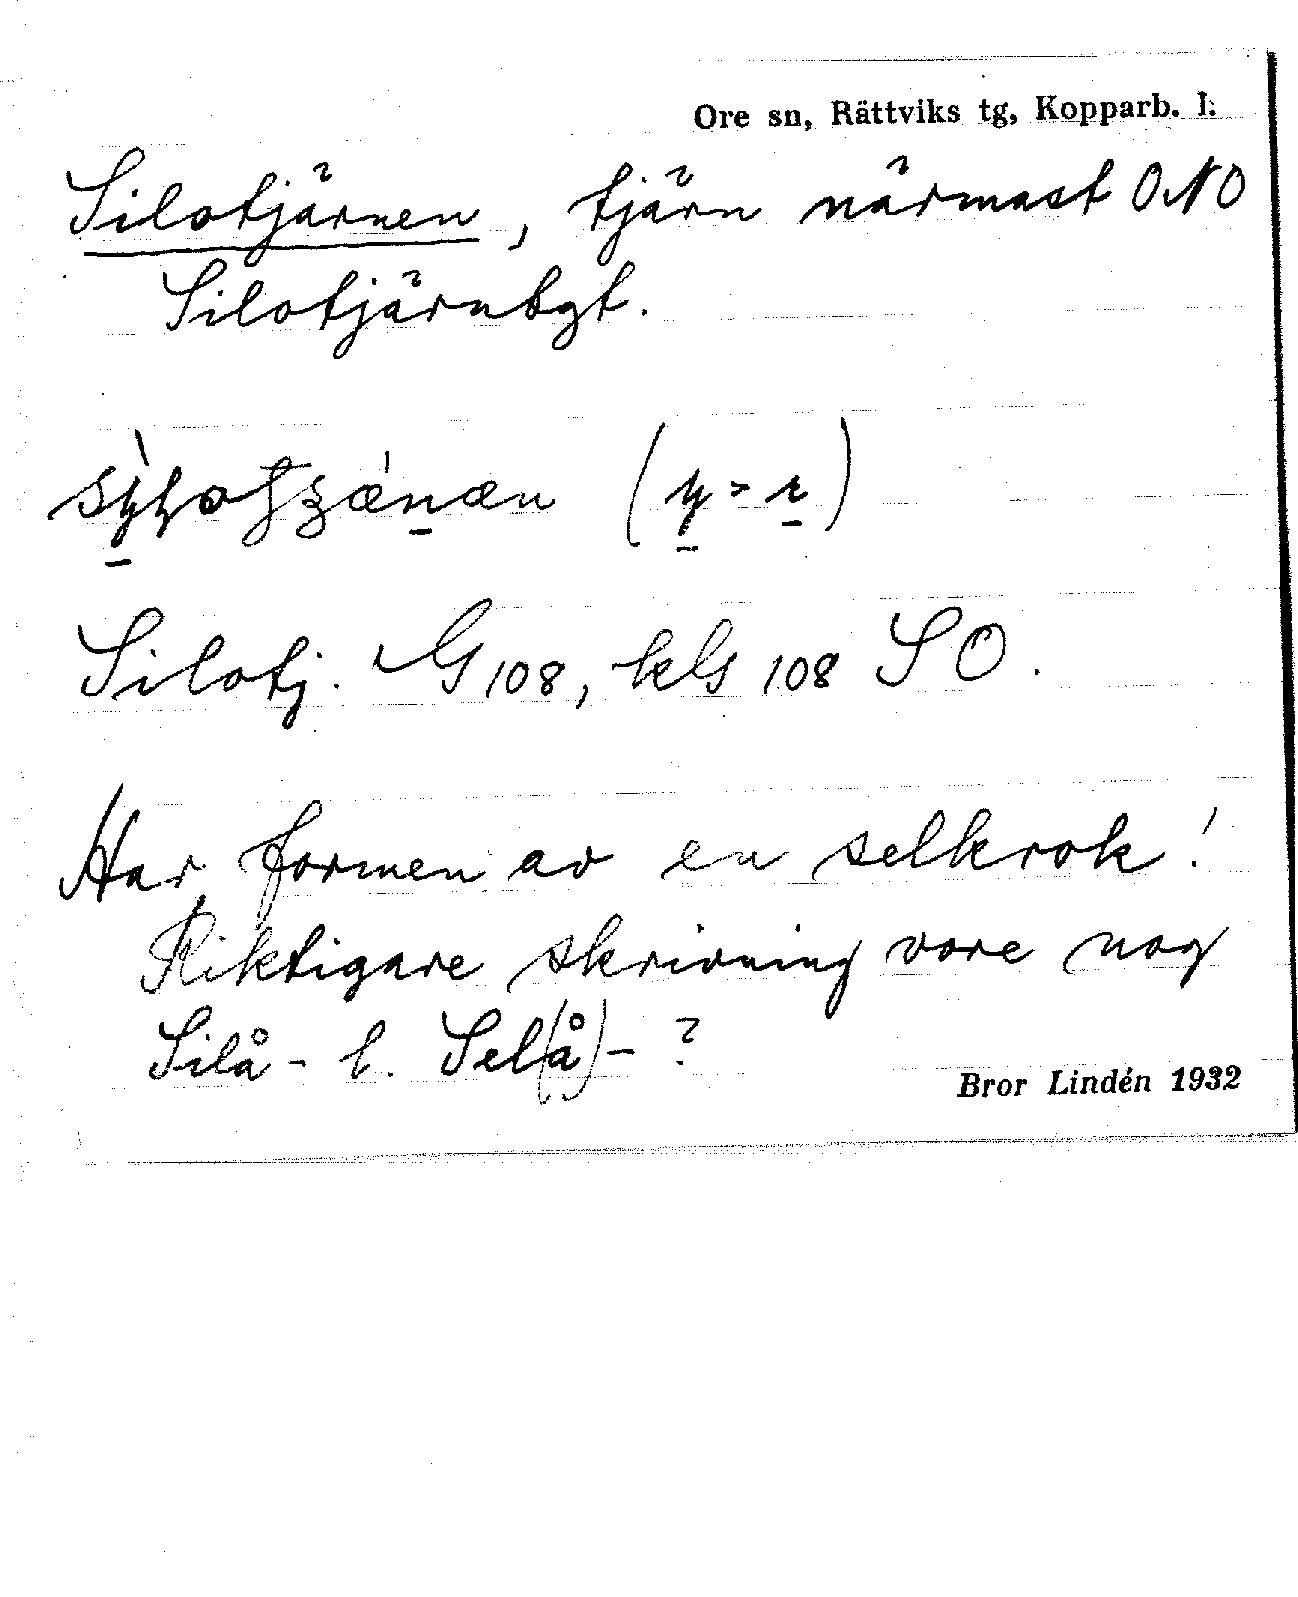 Ore sn, Rättviks tg, Kopparb. l.
Silotjärnen, tjärn närmast ONO
Silotjärnbgt.
Silotj. G 108, kls 108 SO.
Har formen av en selkrok!
Riktigare skrivning vore nog
Silå- l. Sel(å)- ?
Bror Lindén 1932